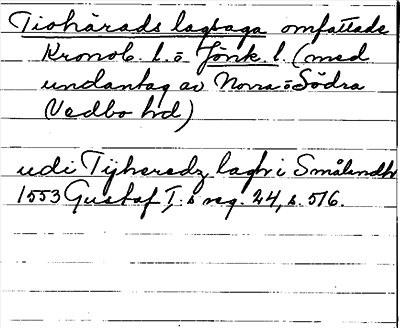 Tiohärads lagsaga omfattade
Kronob. l. o Jönk. l. (med
undantag av Norra o Södra
Vedbo hd)
udi Tijheredz lagh i Smålandh
1553 Gustaf I:s reg. 24, s. 516.